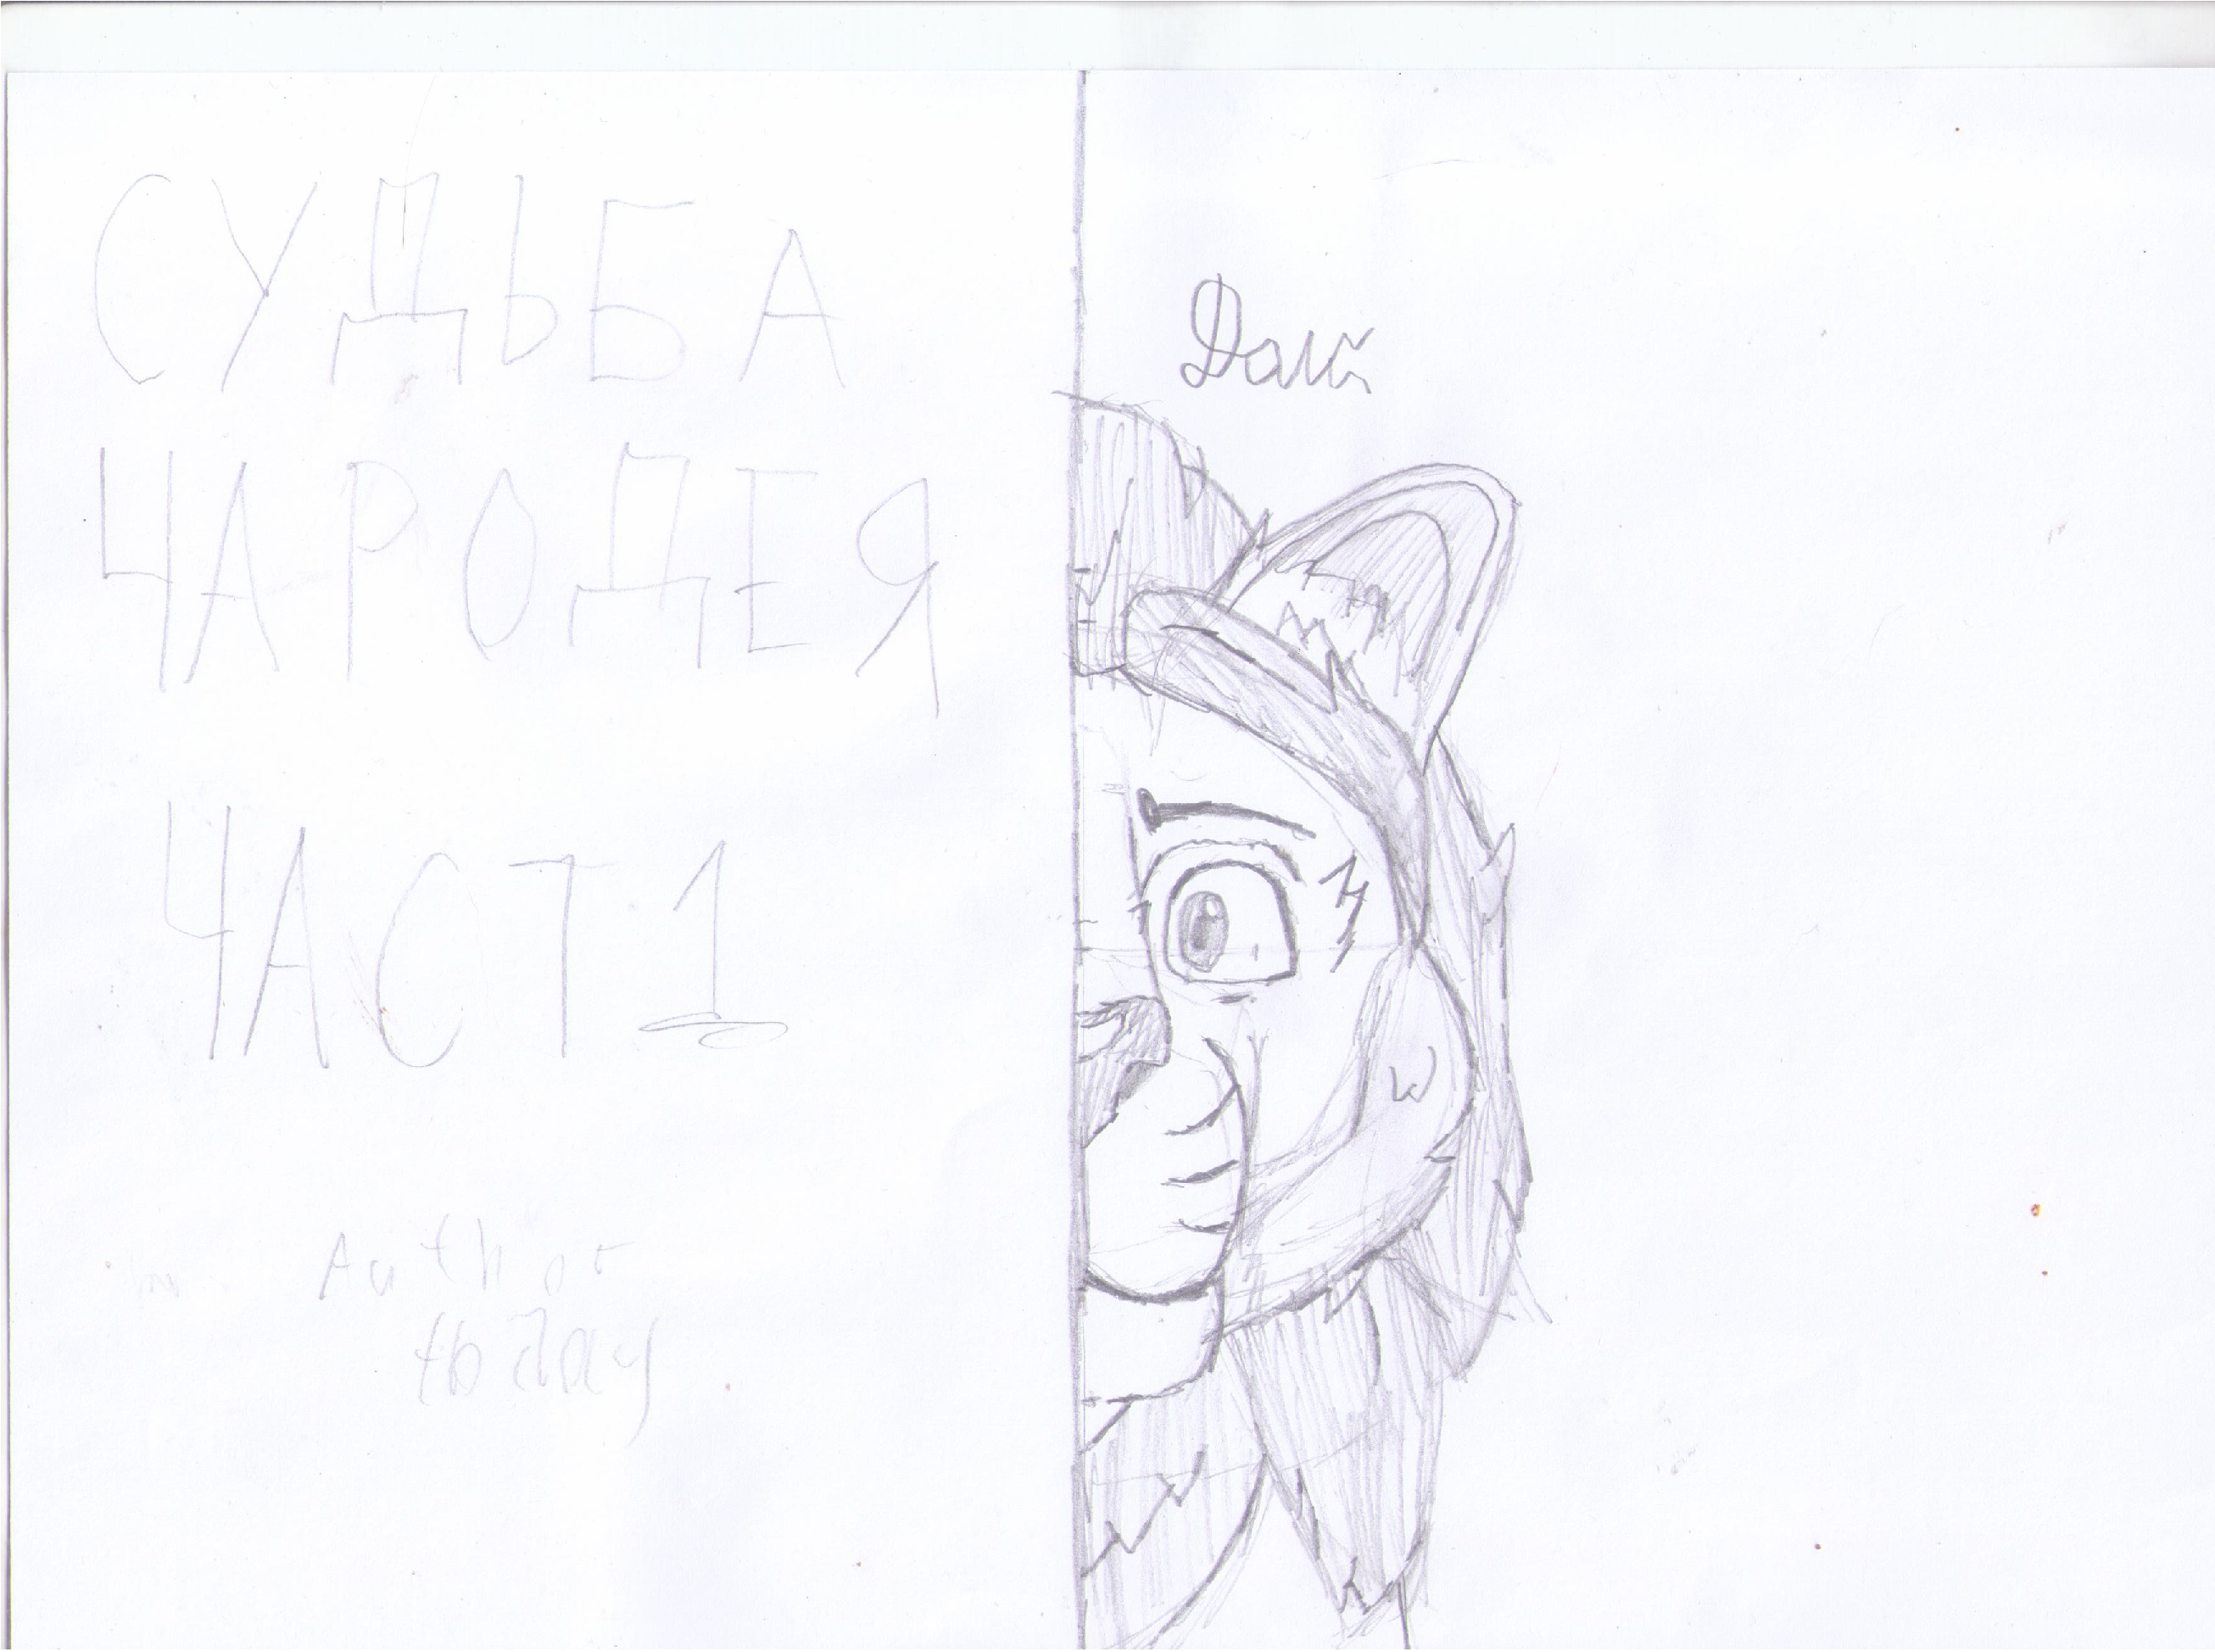 СУДЬБА
ЧАРОДЕЯ
ЧАСТ 1
Author
today